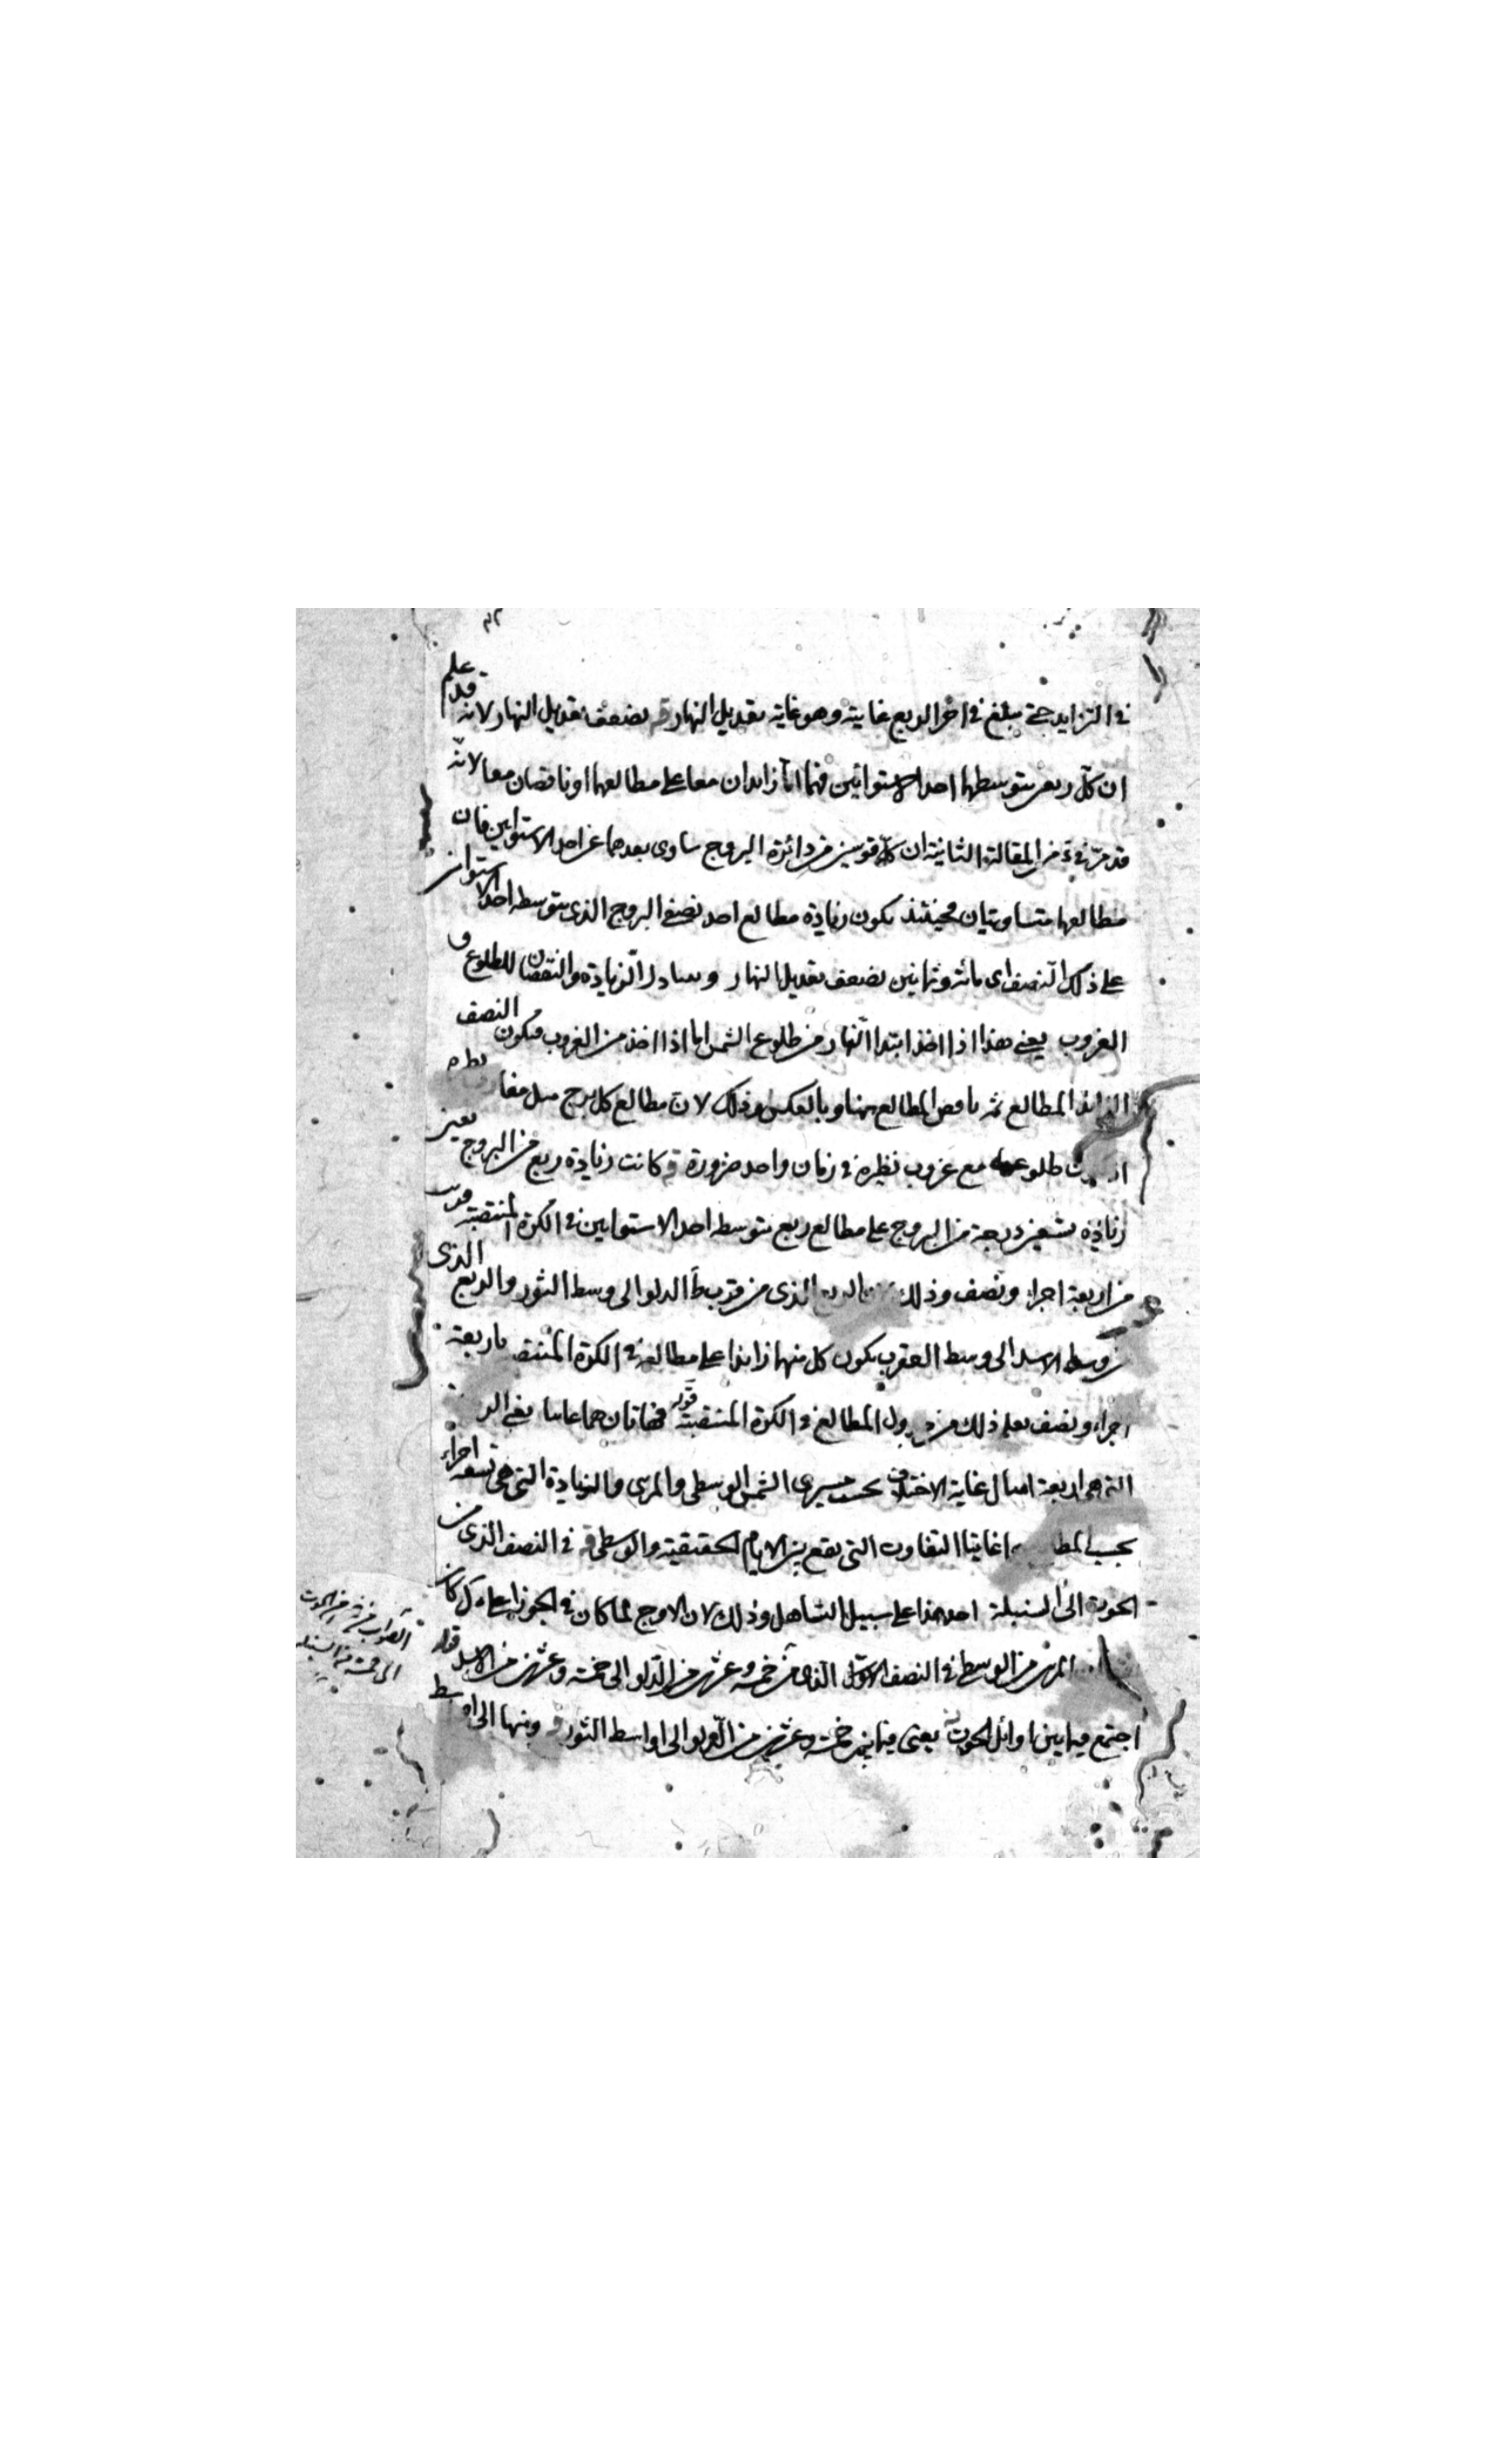 في التزايد حتى يبلغ في اخر الربع غايته وهو غاية تعديل النهار قه بضعف تعديل النهار لانه قد علم
ان كل ربعين يتوسطهما احد الاستوائين فهما اما زايدان معا على مطالعهما او ناقصان معا لانه
قد مرّ في من المقالة الثانية ان كل قوسين من دائرة البروج ساوى بعدهما عن احد الاستوائين فان
مطالعهما متساويتان فحينئذ يكون زيادة مطالع احد نصفي البروج الذى يتوسطه احد الاستوائين
على ذلك النصف اى مائة وثمانين بضعف تعديل النهار ويتبادل الزيادة والنقصان للطلوع و
الغروب يعنى هذا اذا اخذ ابتدا النهار من طلوع الشمس اما اذا اخذ من الغروب فيكون النصف
الزائد المطالع ثمه ناقص المطالع ههنا وبالعكس وذلك لان مطالع كل برج مثل مغارب نظيره
طلوعه مع غروب نظيره في زمان واحد ضرورة قه كانت زيادة ربع من البروج يعنى
زيادة تسعين درجة من البروج على مطالع ربع يتوسطه احد الاستوايين في الكرة المنتصبة قريب
من اربعة اجزاء ونصف وذلك لان الربع الذى من قرب ط الدلو الى وسط الثور والربع الذى
من وسط الاسد الى وسط العقرب يكون كل منهما زايدا على مطالعه في الكرة المنتصـ باربعة
اجزاء ونصف يعلم ذلك من جدول المطالع في الكرة المنتصبة قوله فهاتان هما غايتا يعنى
التى هى اربعة امثال غاية الاختلاف بحسب مسيرى الشمس الوسطى والمرئى والزيادة التى هى تسعة اجزاء
بحسب المطالع غايتا التفاوت التى يقع بين الايام الحقيقية والوسطى قه في النصف الذى من
الحوت الى السنبلة احد هذا على سبيل التساهل وذلك لان الاوج لما كان في الجوزا على كان
المرئى من الوسط في النصف الاول الذى من خمسة وعشرين من الدلو الى خمسة وعشرين من الاسد قوله
اجتمع فيما بين اوائل الحوت يعنى فيما بين خمسة وعشرين من الدلو الى اواسط الثور ومنها الى اواسط
الصواب من من الحوت
الى خمسة من السنبلة